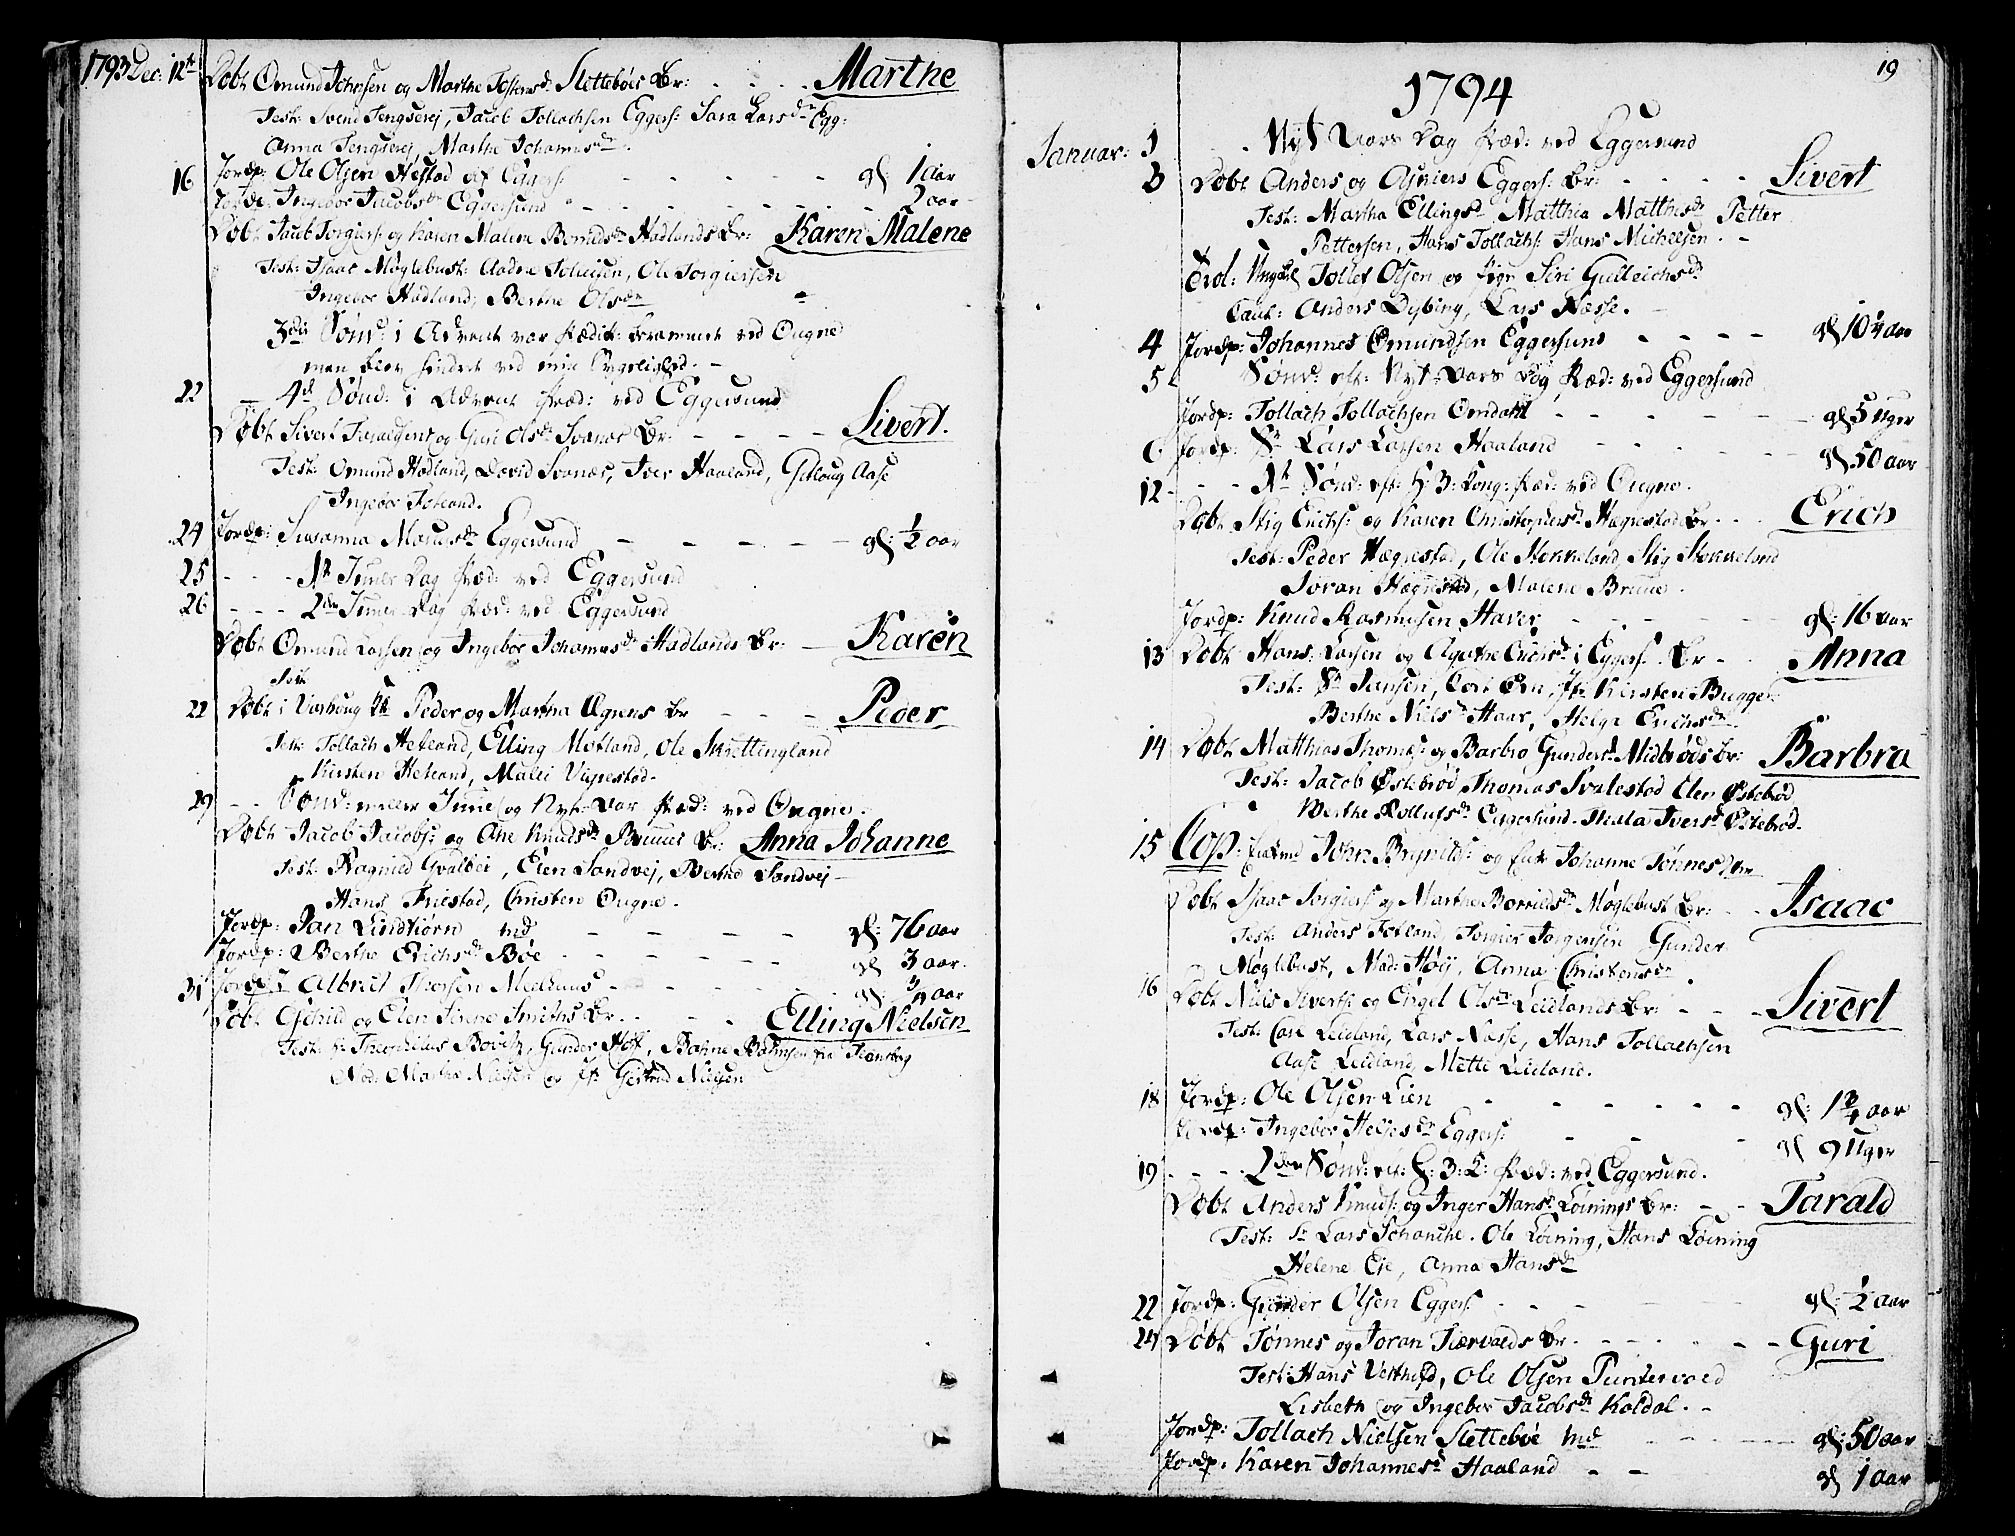 1793 Dec: 12te Døbt Omund Johnsen og Marthe Tostensd. Slettebøes Br: Marthe
Test: Svend Tengserej, Jacob Tollachsen Eggers: Sara Larsdr Egg:
Anna Tengserej, Marthe Johannesdr.
16 Jordp: Ole Olsen Hestad af Eggers: gl: 1 aar
Jordp: Ingebor Jacobsdr Eggersund 2 aar
Døbt Jacob Torgiers: og Karen Malene Bornildsdr Hadlands Br: Karen Malene
Test: Isaac Møglebust: Andre Tolleisen, Ole Torgiersen
Ingebor Hadland, Berthe Olsdr
3die Sønd: i Advent var Prædik: berammet ved Ougne
men blev hindret ved min Sygelighed.
22 4d Sønd: i Advent Præd: ved Eggersund
Døbt Sivert og Guri Olsdr Svanes Br: Sivert.
Test: Omund Hadland, David Svanæs, Iver Haaland, Gitloug Aase
Ingebor
24 Jordp: Susanna Eggersund gl: ½ aar
25 1te Juule Dag Præd: ved Eggersund
26 2den Juule Dag Præd: ved Eggersund
Døbt Omund Larsen og Ingebor Johannesdr Hadlands Br: Karen
Test
22 Døbt i Varhoug Kk Peder og Martha Ægrens Br Peder
Test: Tollach Hetland, Elling Motland, Ole Skrettingland
Kirsten Hetland, Malei Vigrestad.
29 Sønd: mellem Juule og Nyt-Aar Præd: ved Ougne.
Døbt Jacob Jacobs: og Ane Knudsdr Bruuses Br: Anna Johanne
Test: Ragnild Qvalbei, Elen Sandvej, Berthe Sandvej
Hans Friestad, Christen Ougne.
Jordp: Jan Lindtiørn md gl: 76 aar
Jordp: Berthe Erichsdr Bøe gl 3 aar.
31 Jordp: Albrit Thorsen Mielhuus gl: ¾ aar
Døbt Eschild og Elen Sinne Smiths Br. Elling Nielsen
Test: Hr Theophilus Bovitz, Gunder Høff, Bahne Bahnsen fra
Mad: Marthe Nielsen og Jfr Giertrud Nielsen
19
1794
Januar: 1 Nyt Aars Dag Præd: ved Eggersund
3 Døbt Anders og Asniers Eggers: Br: Sivert
Test: Martha Ellingsd Matthia Matthisdr Petter
Pettersen, Hans Tollachs: Hans Michelsen.
Trol: Ungkarl Tollef Olsen og Pige Siri Gulleichsdr
Caut: Anders Dybing, Lars Næsse.
4 Jordp: Johannes Omundsen Eggersund gl: 10¼ aar
5 Sønd: eft: Nyt-Aars Dag Præd: ved Eggersund
Jordp: Tollach Tollachsen Omdahl gl: 5 Uger
6 Jordp: Sr Lars Larsen Haaland gl: 50 aar
12 1te Sønd: eft: H: 3: Kong: Præd: ved Ougne.
Døbt Stig Erichs: og Karen Christophersdr Hægrestad Br. Erich
Test: Peder Hægrestad, Ole Stokkeland, Stig Stokkeland
Joran Hægrestad, Malene Bruue.
Jordp: Knud Rasmusen Haver gl: 16 aar
13 Døbt Hans Larsen og Agathe Erichsdr i Eggers: Br Anna
Test: Sr Jansen, Carl Øen, Jfr Kirsten Bugge
Berthe Nielsdr Haar, Helga Erichsdr
14 Døbt Matthias Thomes: og Barbro Gundersd Midbrøds Br: Barbra
Test: Jacob Østebrød, Thomas Svalestad Elen Østebrød
Berthe Rollufsdr Eggersund. Thala Iversd Østebrød.
15 Cop: Enkemd John Brynilds: og Enke Johanne Tønnesd
Døbt Isaac Torgiers: og Marthe Borrildsdr Møglebust Br: Isaac
Test: Anders Tetland, Torgier Jørgensen Gunder
Møglebust, Mad: Høij, Anna Christensdr
16 Døbt Niels Siverts: og Engel Olsdr Leidlands Br: Sivert
Test: Carl Leidland, Lars Næsse, Hans Tollachsen
Aase Leidland, Mette Leidland.
18 Jordp: Ole Olsen Lien gl: 1¾ aar
Jordp: Ingebor Heljesdr Eggers: gl 9 Uger
19 2den Sønd: eft: H: 3: K: Præd: ved Eggersund.
Døbt Anders Knuds: og Inger Hansd: Løinings Br: Tarald
Test: Sr Lars Schanche. Ole Løining, Hans Løining
Helene Eie, Anna Hansdr
22 Jordp: Gunder Olsen Eggers: gl: ½ aar
24 Døbt Tønnes og Joran Kiærvolds Br. Guri
Test: Hans Vesthed, Ole Olsen Puntervold
Lisbeth og Ingebor Jacobsdr Koldal.
Jordp: Tollach Nielsen Slettebøe md gl: 50 aar
Jordp: Karen Johannesd Haaland gl 1 aar